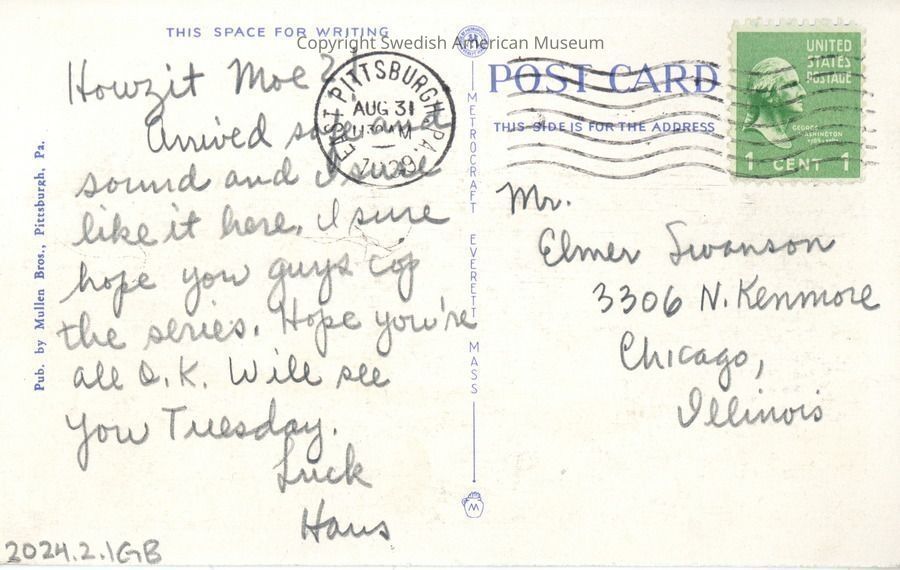 THIS SPACE FOR WRITING
Copyright Swedish American Museum
Howzit Moe?
Arrived safe and
sound and I sure
like it here. I sure
hope you guys cop
the series. Hope you're
all O.K. Will see
you Tuesday.
Luck
Hans
2024.2.1GB
Pub. by Mullen Bros., Pittsburgh, Pa.
METROCRAFT EVERETT MASS
EAST PITTSBURGH, PA.
AUG 31
M
POST CARD
THIS SIDE IS FOR THE ADDRESS
UNITED
STATES
POSTAGE
GEORGE
WASHINGTON
1 CENT 1
Mr.
Elmer Swanson
3306 N. Kenmore
Chicago,
Illinois